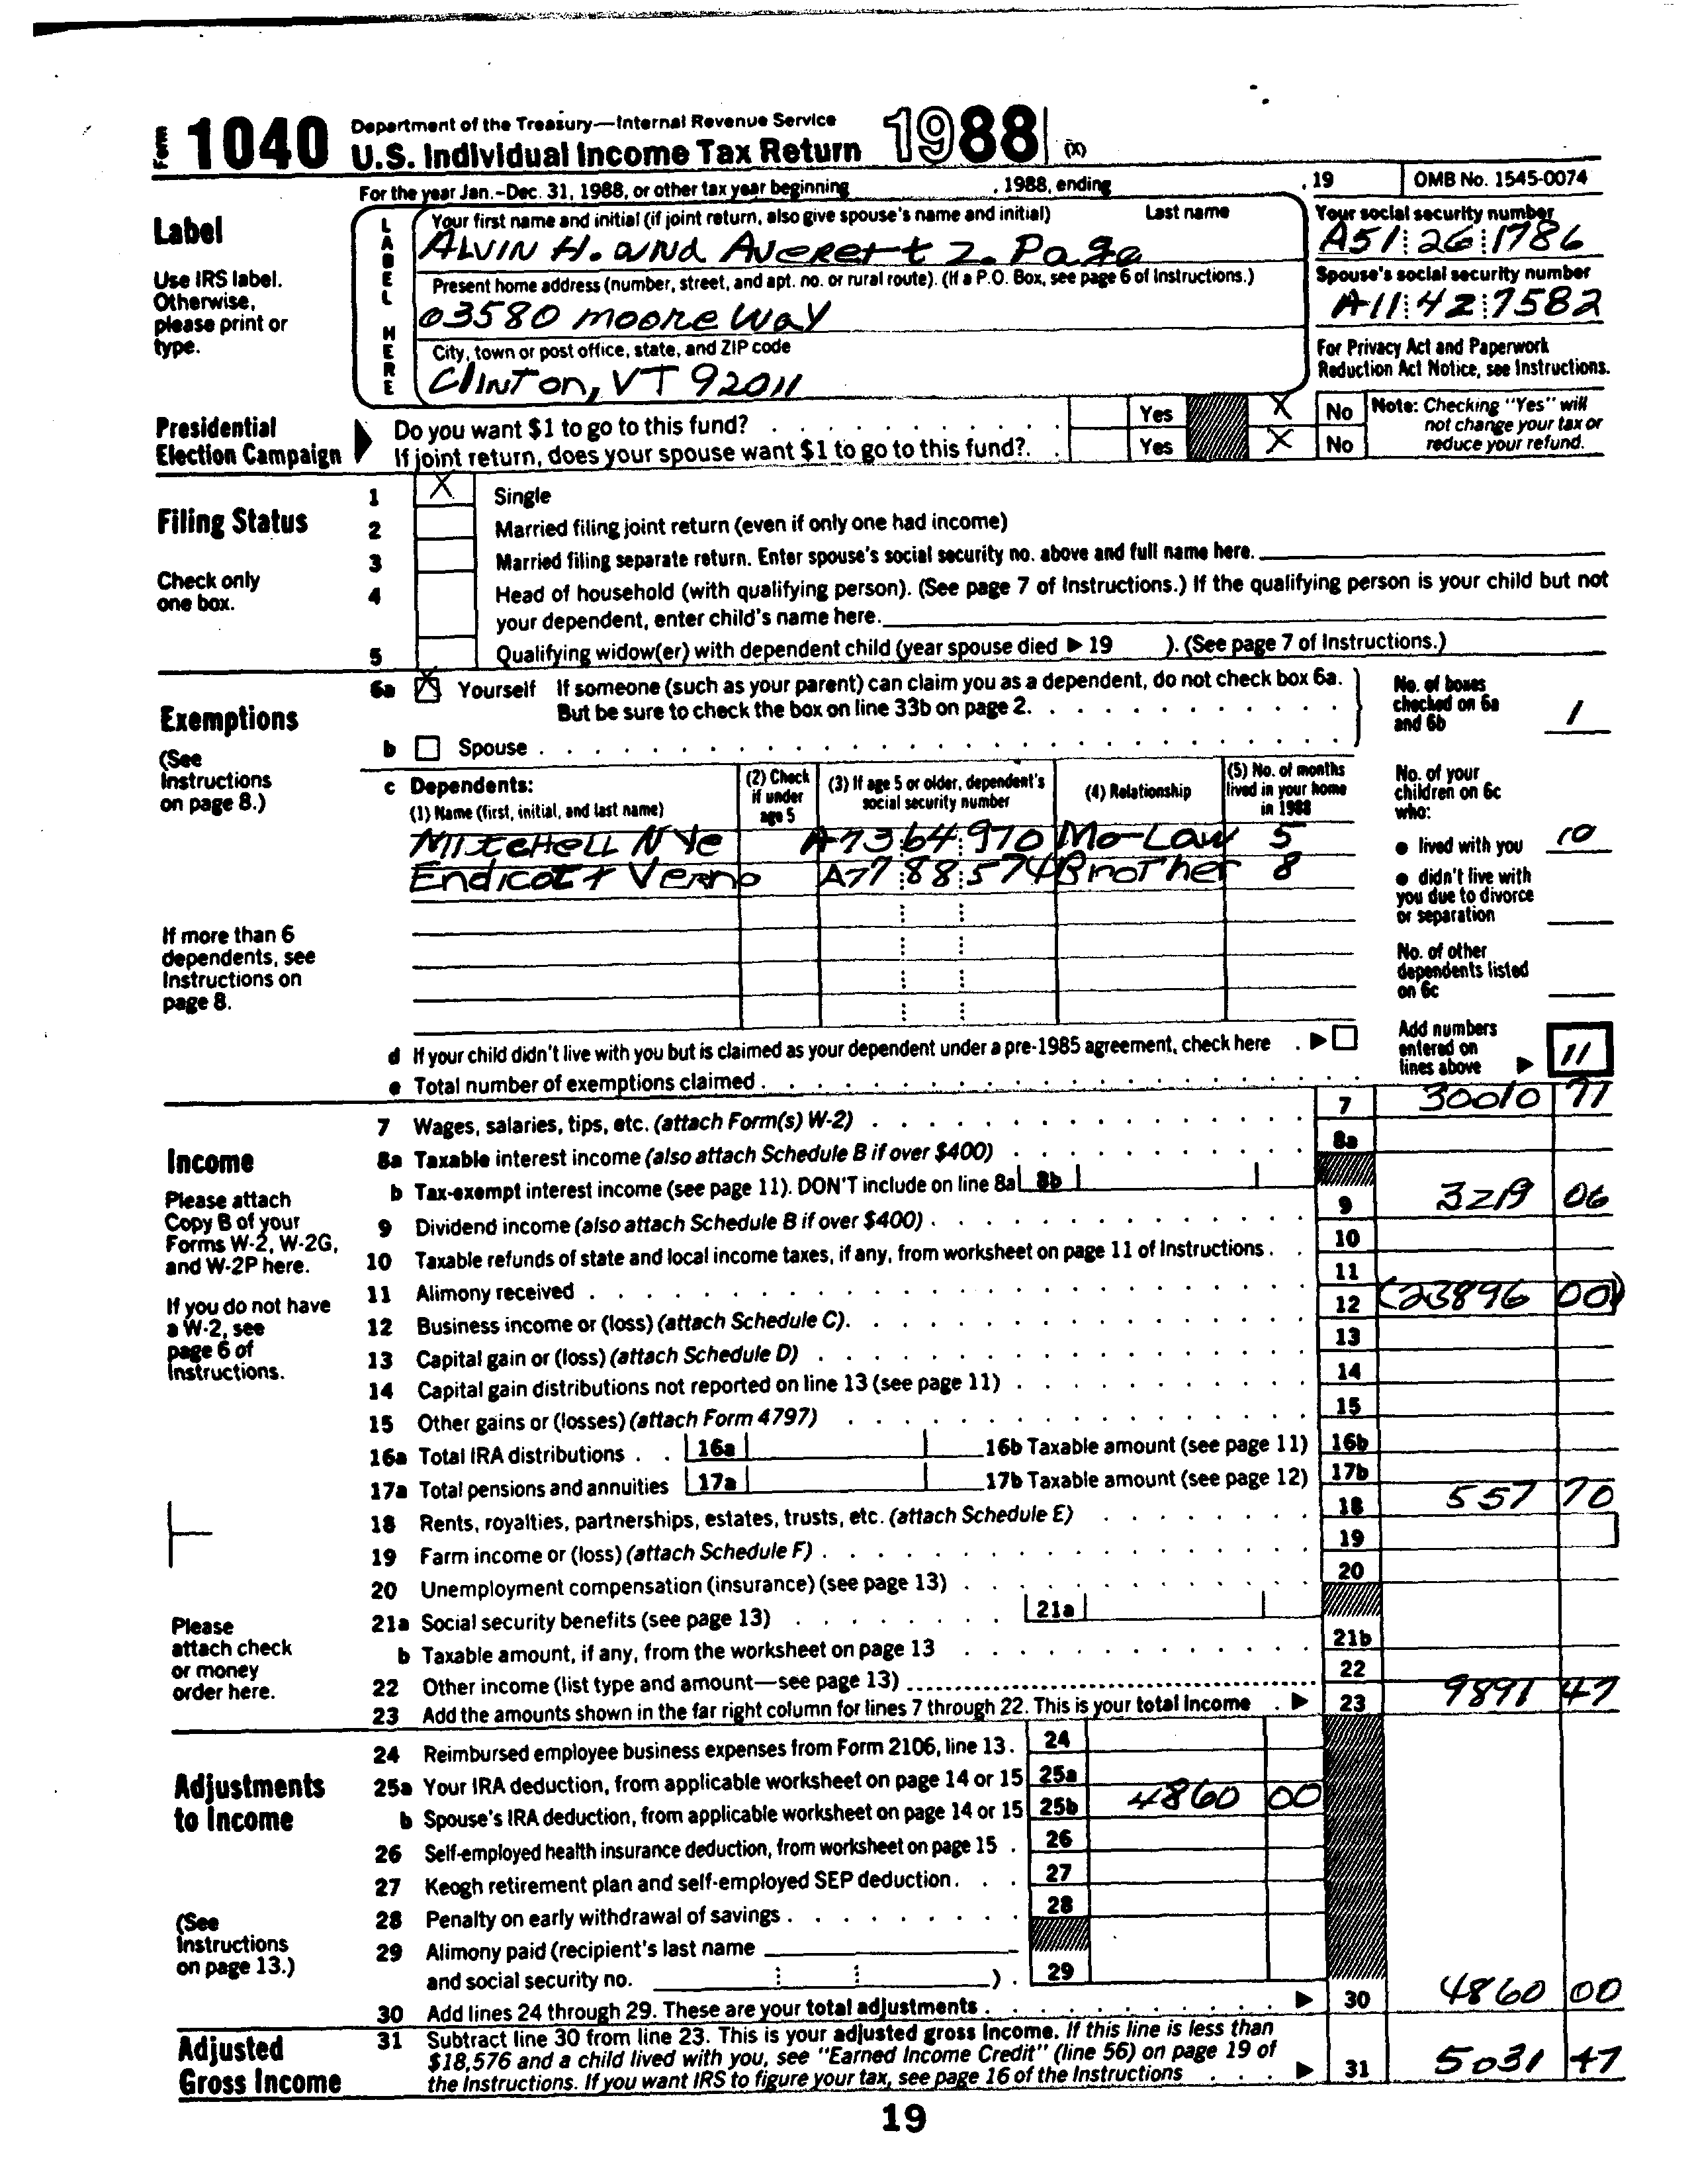 Form 1040 Department of the Treasury—Internal Revenue Service
U.S. Individual Income Tax Return 1988 (X)
For the year Jan.-Dec. 31, 1988, or other tax year beginning , 1988, ending , 19 OMB No. 1545-0074
Label
Use IRS label.
Otherwise,
please print or
type.
LABEL HERE
Your first name and initial (if joint return, also give spouse's name and initial) Last name
ALVIN H. and Averett Z. Page
Your social security number
A51 26 1786
Present home address (number, street, and apt. no. or rural route). (If a P.O. Box, see page 6 of Instructions.)
03580 Moore Way
Spouse's social security number
A11 42 7582
City, town or post office, state, and ZIP code
Clinton, VT 92011
For Privacy Act and Paperwork
Reduction Act Notice, see Instructions.
Presidential
Election Campaign
Do you want $1 to go to this fund? Yes X No
If joint return, does your spouse want $1 to go to this fund?. Yes X No
Note: Checking "Yes" will
not change your tax or
reduce your refund.
Filing Status
Check only
one box.
1 X Single
2 Married filing joint return (even if only one had income)
3 Married filing separate return. Enter spouse's social security no. above and full name here.
4 Head of household (with qualifying person). (See page 7 of Instructions.) If the qualifying person is your child but not
your dependent, enter child's name here.
5 Qualifying widow(er) with dependent child (year spouse died ▶ 19 ). (See page 7 of Instructions.)
Exemptions
(See
Instructions
on page 8.)
6a X Yourself If someone (such as your parent) can claim you as a dependent, do not check box 6a.
But be sure to check the box on line 33b on page 2.
b Spouse
No. of boxes
checked on 6a
and 6b 1
c Dependents:
(1) Name (first, initial, and last name)
(2) Check
if under
age 5
(3) If age 5 or older, dependent's
social security number
(4) Relationship
(5) No. of months
lived in your home
in 1988
Mitchell Nye A73 64 970 Mo-Law 5
Endicott Verno A77 88 574 Brother 8
If more than 6
dependents, see
Instructions on
page 8.
No. of your
children on 6c
who:
● lived with you 10
● didn't live with
you due to divorce
or separation
No. of other
dependents listed
on 6c
d If your child didn't live with you but is claimed as your dependent under a pre-1985 agreement, check here . ▶
e Total number of exemptions claimed
Add numbers
entered on
lines above ▶ 11
Income
Please attach
Copy B of your
Forms W-2, W-2G,
and W-2P here.
If you do not have
a W-2, see
page 6 of
Instructions.
Please
attach check
or money
order here.
7 Wages, salaries, tips, etc. (attach Form(s) W-2) 7 30010 71
8a Taxable interest income (also attach Schedule B if over $400) 8a
b Tax-exempt interest income (see page 11). DON'T include on line 8a 8b
9 Dividend income (also attach Schedule B if over $400) 9 3219 06
10 Taxable refunds of state and local income taxes, if any, from worksheet on page 11 of Instructions 10
11 Alimony received 11
12 Business income or (loss) (attach Schedule C). 12 (23896 00)
13 Capital gain or (loss) (attach Schedule D) 13
14 Capital gain distributions not reported on line 13 (see page 11) 14
15 Other gains or (losses) (attach Form 4797) 15
16a Total IRA distributions 16a 16b Taxable amount (see page 11) 16b
17a Total pensions and annuities 17a 17b Taxable amount (see page 12) 17b
18 Rents, royalties, partnerships, estates, trusts, etc. (attach Schedule E) 18 557 70
19 Farm income or (loss) (attach Schedule F) 19
20 Unemployment compensation (insurance) (see page 13) 20
21a Social security benefits (see page 13) 21a
b Taxable amount, if any, from the worksheet on page 13 21b
22 Other income (list type and amount—see page 13) 22
23 Add the amounts shown in the far right column for lines 7 through 22. This is your total income ▶ 23 9891 47
Adjustments
to Income
(See
Instructions
on page 13.)
24 Reimbursed employee business expenses from Form 2106, line 13. 24
25a Your IRA deduction, from applicable worksheet on page 14 or 15 25a
b Spouse's IRA deduction, from applicable worksheet on page 14 or 15 25b 4860 00
26 Self-employed health insurance deduction, from worksheet on page 15 26
27 Keogh retirement plan and self-employed SEP deduction 27
28 Penalty on early withdrawal of savings 28
29 Alimony paid (recipient's last name
and social security no. ) . 29
30 Add lines 24 through 29. These are your total adjustments ▶ 30 4860 00
Adjusted
Gross Income
31 Subtract line 30 from line 23. This is your adjusted gross income. If this line is less than
$18,576 and a child lived with you, see "Earned Income Credit" (line 56) on page 19 of
the Instructions. If you want IRS to figure your tax, see page 16 of the Instructions ▶ 31 5031 47
19